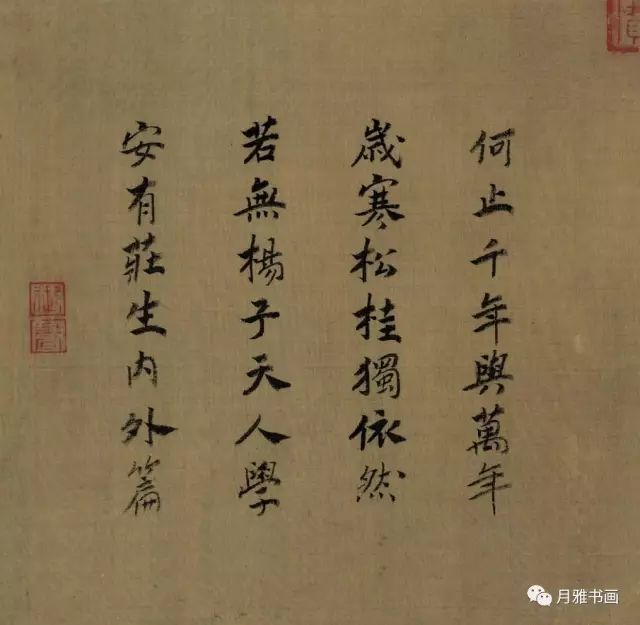 何止千年與萬年
歳寒松桂獨依然
若無楊子天人學
安有莊生内外篇
月雅书画